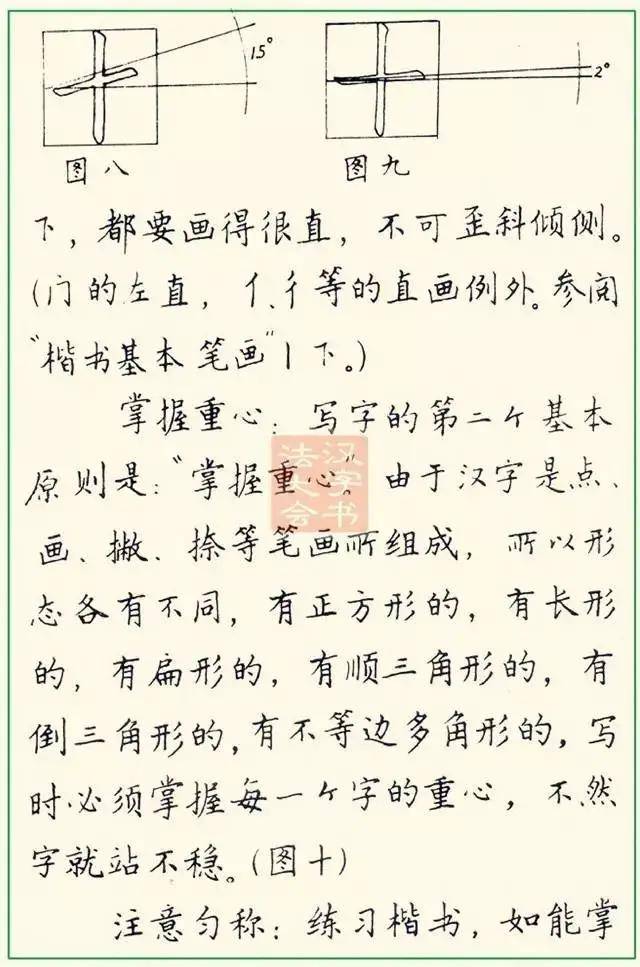 15° 2°
图八 图九
下，都要画得很直，不可歪斜倾侧。
(门的左直，亻、彳等的直画例外。参阅
“楷书基本笔画”丨下。)
掌握重心：写字的第二个基本
原则是：“掌握重心”。由于汉字是点、
画、撇、捺等笔画所组成，所以形
态各有不同，有正方形的，有长形
的，有扁形的，有顺三角形的，有
倒三角形的，有不等边多角形的，写
时必须掌握每一个字的重心，不然
字就站不稳。(图十)
注意匀称：练习楷书，如能掌
汉字书
法大会